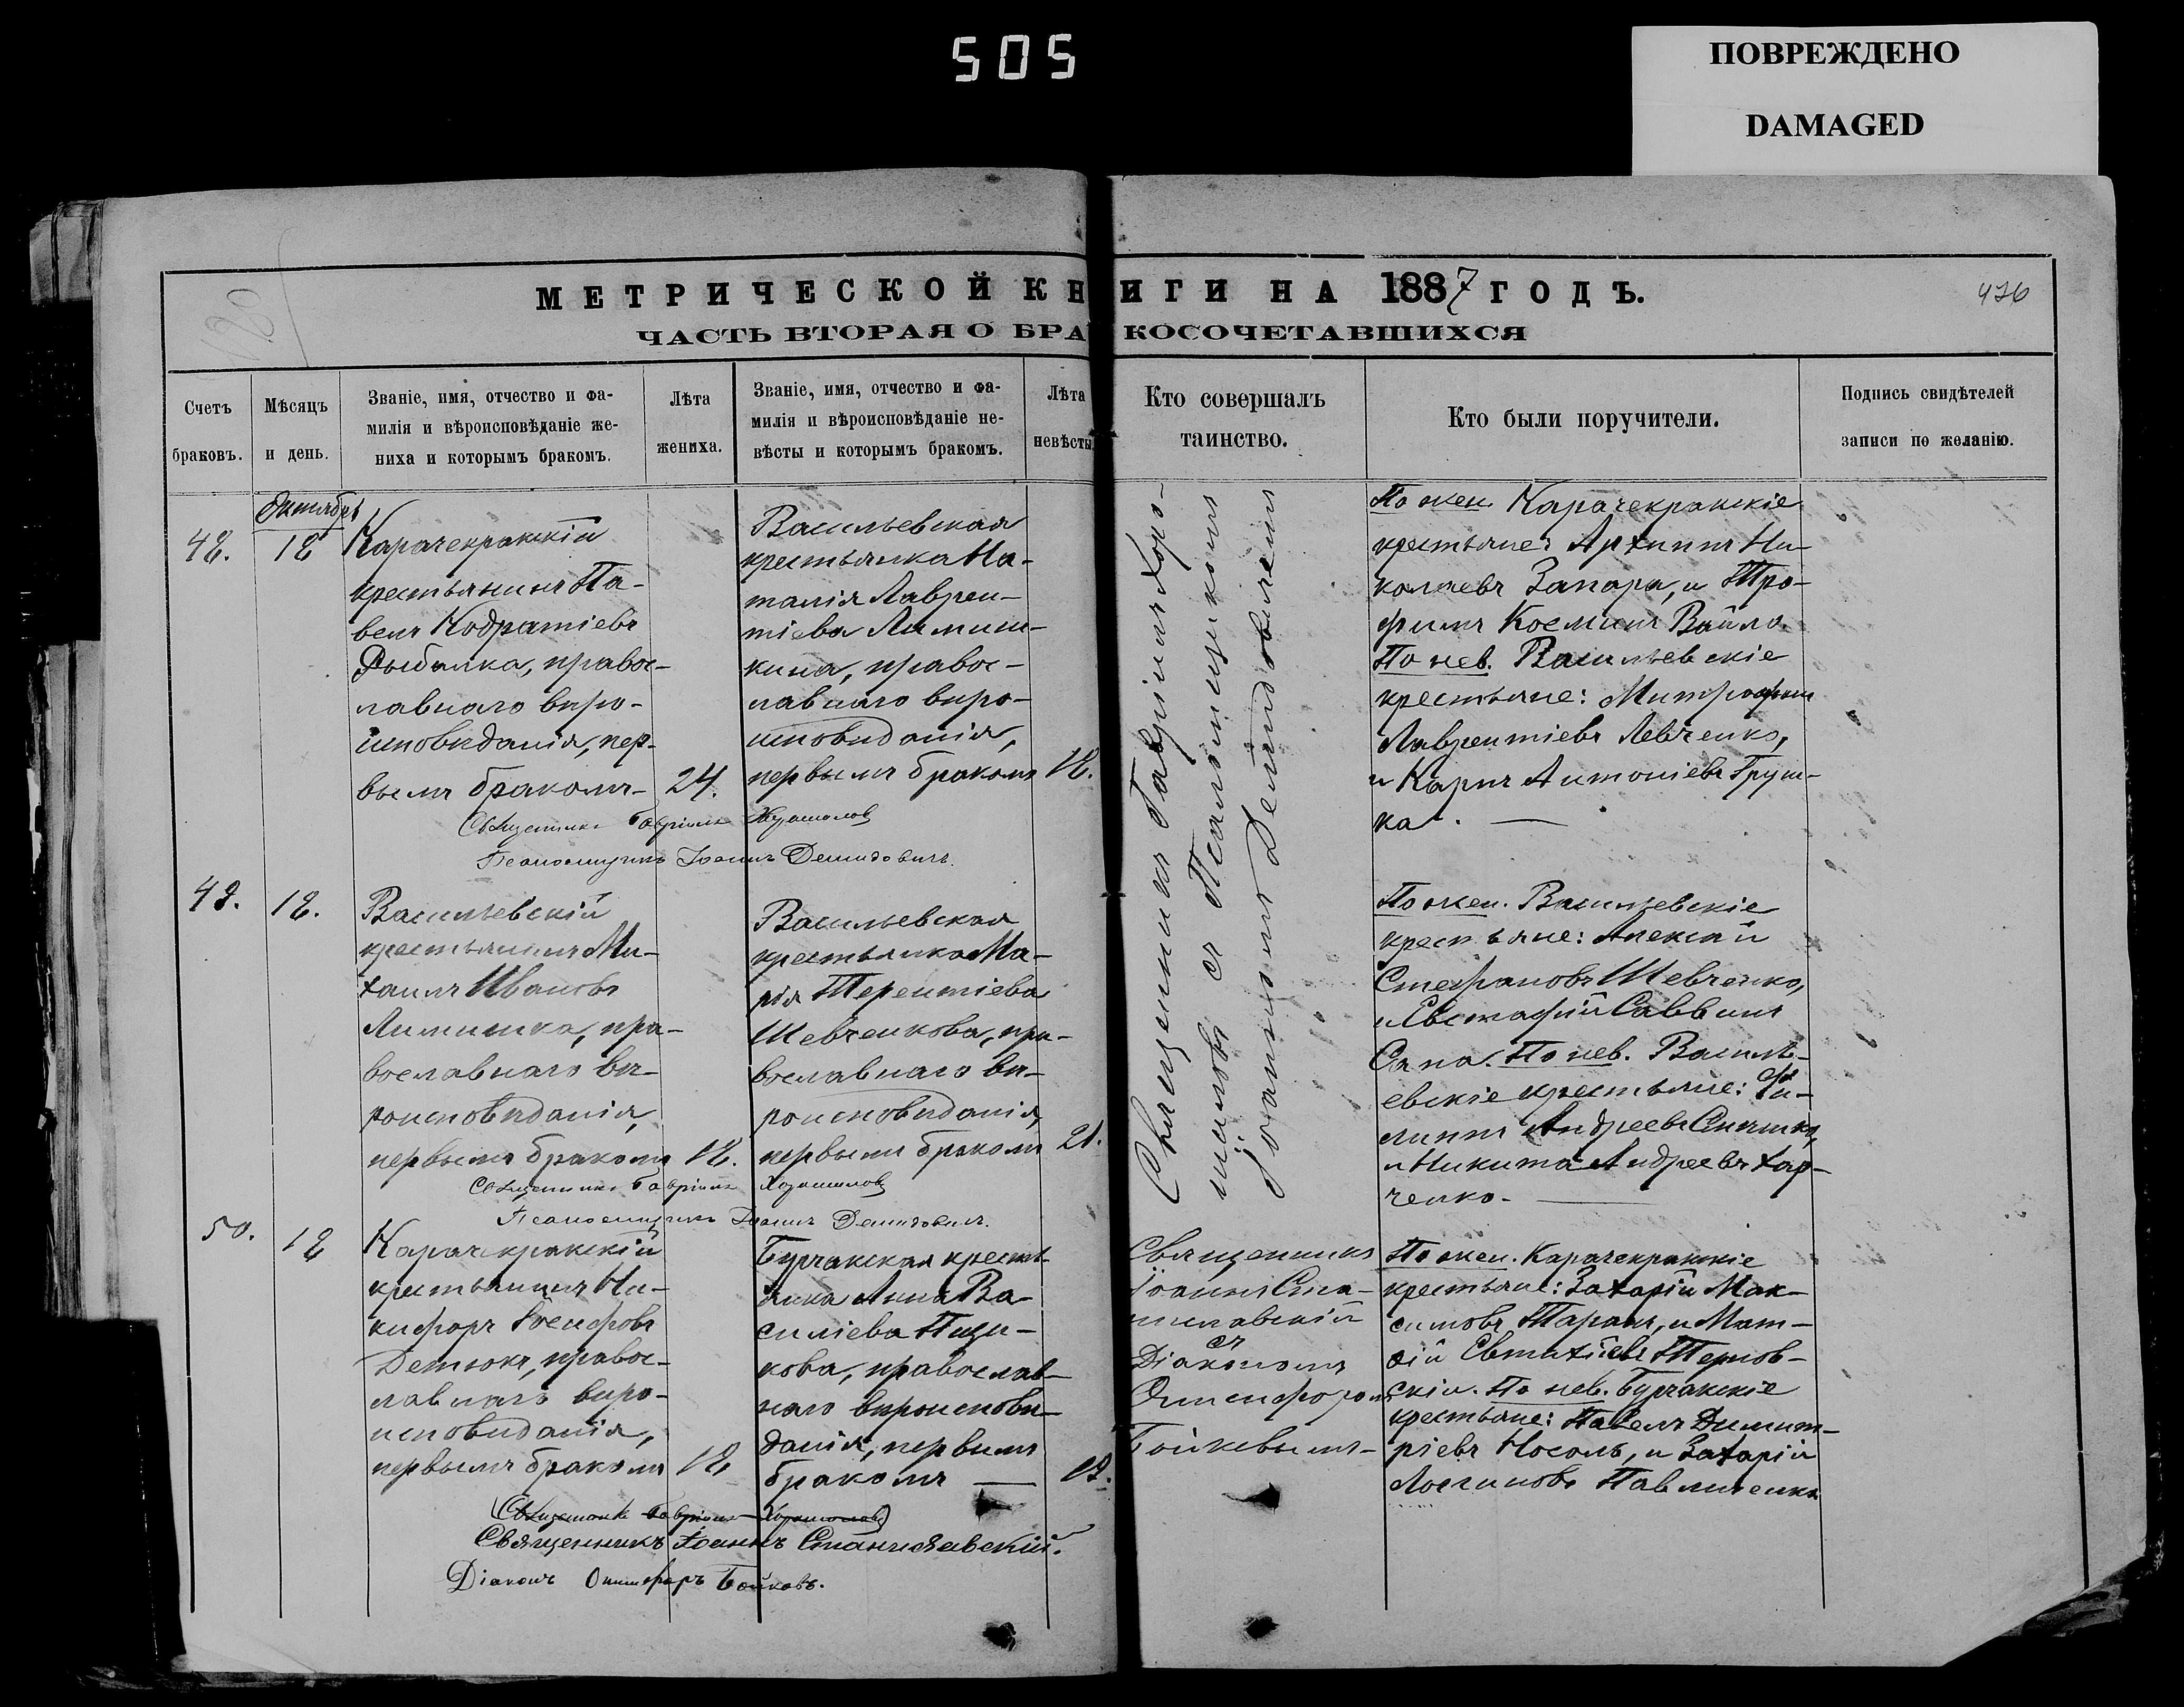 505
ПОВРЕЖДЕНО
DAMAGED
МЕТРИЧЕСКОЙ КНИГИ НА 1887 ГОДЪ.
476
ЧАСТЬ ВТОРАЯ О БРАКОСОЧЕТАВШИХСЯ
Счетъ браковъ.
Мѣсяцъ и день.
Званіе, имя, отчество и фа-
милія и вѣроисповѣданіе же-
ниха и которымъ бракомъ.
Лѣта жениха.
Званіе, имя, отчество и фа-
милія и вѣроисповѣданіе не-
вѣсты и которымъ бракомъ.
Лѣта невѣсты.
Кто совершалъ
таинство.
Кто были поручители.
Подпись свидѣтелей
записи по желанію.
Октябрь
48.
18
Карачекракскій
крестьянинъ Па-
велъ Кодратіевъ
Рыбалка, правос-
лавнаго вѣро-
исповѣданія, пер-
вымъ бракомъ
24.
Васильевская
крестьянка На-
талія Лаврен-
тіева Лимиш-
кина, правос-
лавнаго вѣро-
исповѣданія,
первымъ бракомъ
18.
Священникъ Гавріилъ
Псаломщикъ Іоаннъ Демидовичъ.
Священникъ Гавріилъ Хоро-
шиловъ съ Псаломщикомъ
Іоанномъ Демидовичемъ
По жен. Карачекракскіе
крестьяне: Архиппъ Ни-
колаевъ Запара, и Тро-
фимъ Косминъ Вайло.
По нев. Васильевскіе
крестьяне: Митрофанъ
Лаврентіевъ Левченко,
и Карпъ Антоніевъ Груш-
ка.
49.
18.
Васильевскій
крестьянинъ Ми-
хаилъ Ивановъ
Лимишка, пра-
вославнаго вѣ-
роисповѣданія,
первымъ бракомъ
18.
Васильевская
крестьянка Ма-
рія Терентіева
Шевченкова, пра-
вославнаго вѣ-
роисповѣданія,
первымъ бракомъ
21.
Священникъ Гавріилъ
Псаломщикъ Іоаннъ Демидовичъ.
По жен. Васильевскіе
крестьяне: Алексѣй
Стефановъ Шевченко,
и Евстафій Саввинъ
Сапа. По нев. Василь-
евскіе крестьяне: Фи-
липпъ Андреевъ
и Никита Андреевъ Хар-
ченко.
50.
18
Карачекракскій
крестьянинъ Ни-
кифоръ Іосифовъ
Детюкъ, правос-
лавнаго вѣро-
исповѣданія,
первымъ бракомъ
18
Бурчакская кресть-
янка Анна Ва-
силіева Пици-
кова, православ-
наго вѣроисповѣ-
данія, первымъ
бракомъ
19.
Священникъ
Іоаннъ Ста-
ниславскій
съ
Діакономъ
Онисифоромъ
Бойковымъ
По жен. Карачекракскіе
крестьяне: Захарій Мак-
симовъ Таранъ, и Мат-
ѳій Евтихіевъ Тернов-
скій. По нев. Бурчакскіе
крестьяне: Павелъ Димит-
ріевъ Носоль, и Захарій
Логиновъ Павличенко
Священникъ Гавріилъ Хорошиловъ
Священникъ Іоаннъ Станиславскій.
Діаконъ Онисифоръ Бойковъ.